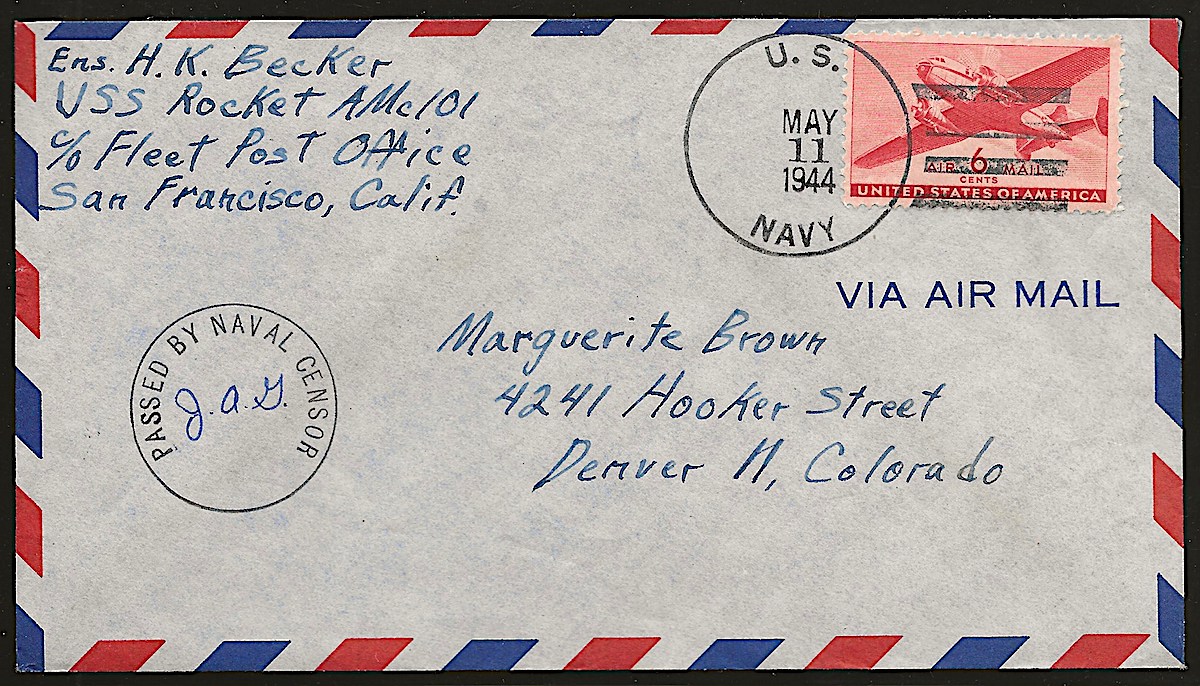 Ens. H. K. Becker
USS Rocket AMc101
c/o Fleet Post Office
San Francisco, Calif.
U. S.
MAY
11
1944
NAVY
AIR 6 MAIL
CENTS
UNITED STATES OF AMERICA
VIA AIR MAIL
PASSED BY NAVAL CENSOR
J. A. G.
Marguerite Brown
4241 Hooker Street
Denver 11, Colorado